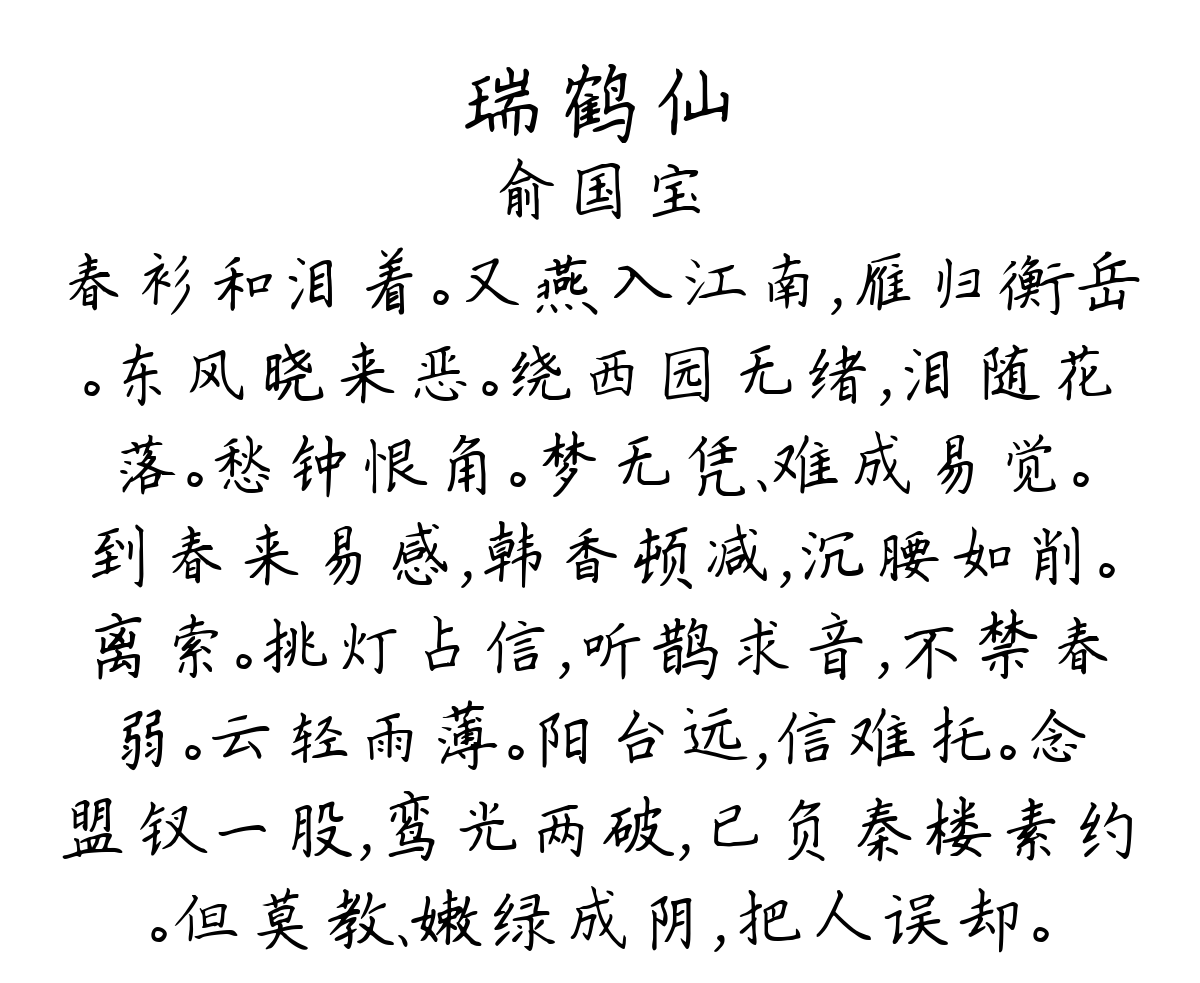 瑞鹤仙
俞国宝
春衫和泪着。又燕入江南,雁归衡岳
。东风晓来恶。绕西园无绪,泪随花
落。愁钟恨角。梦无凭、难成易觉。
到春来易感,韩香顿减,沉腰如削。
离索。挑灯占信,听鹊求音,不禁春
弱。云轻雨薄。阳台远,信难托。念
盟钗一股,鸾光两破,已负秦楼素约
。但莫教、嫩绿成阴,把人误却。